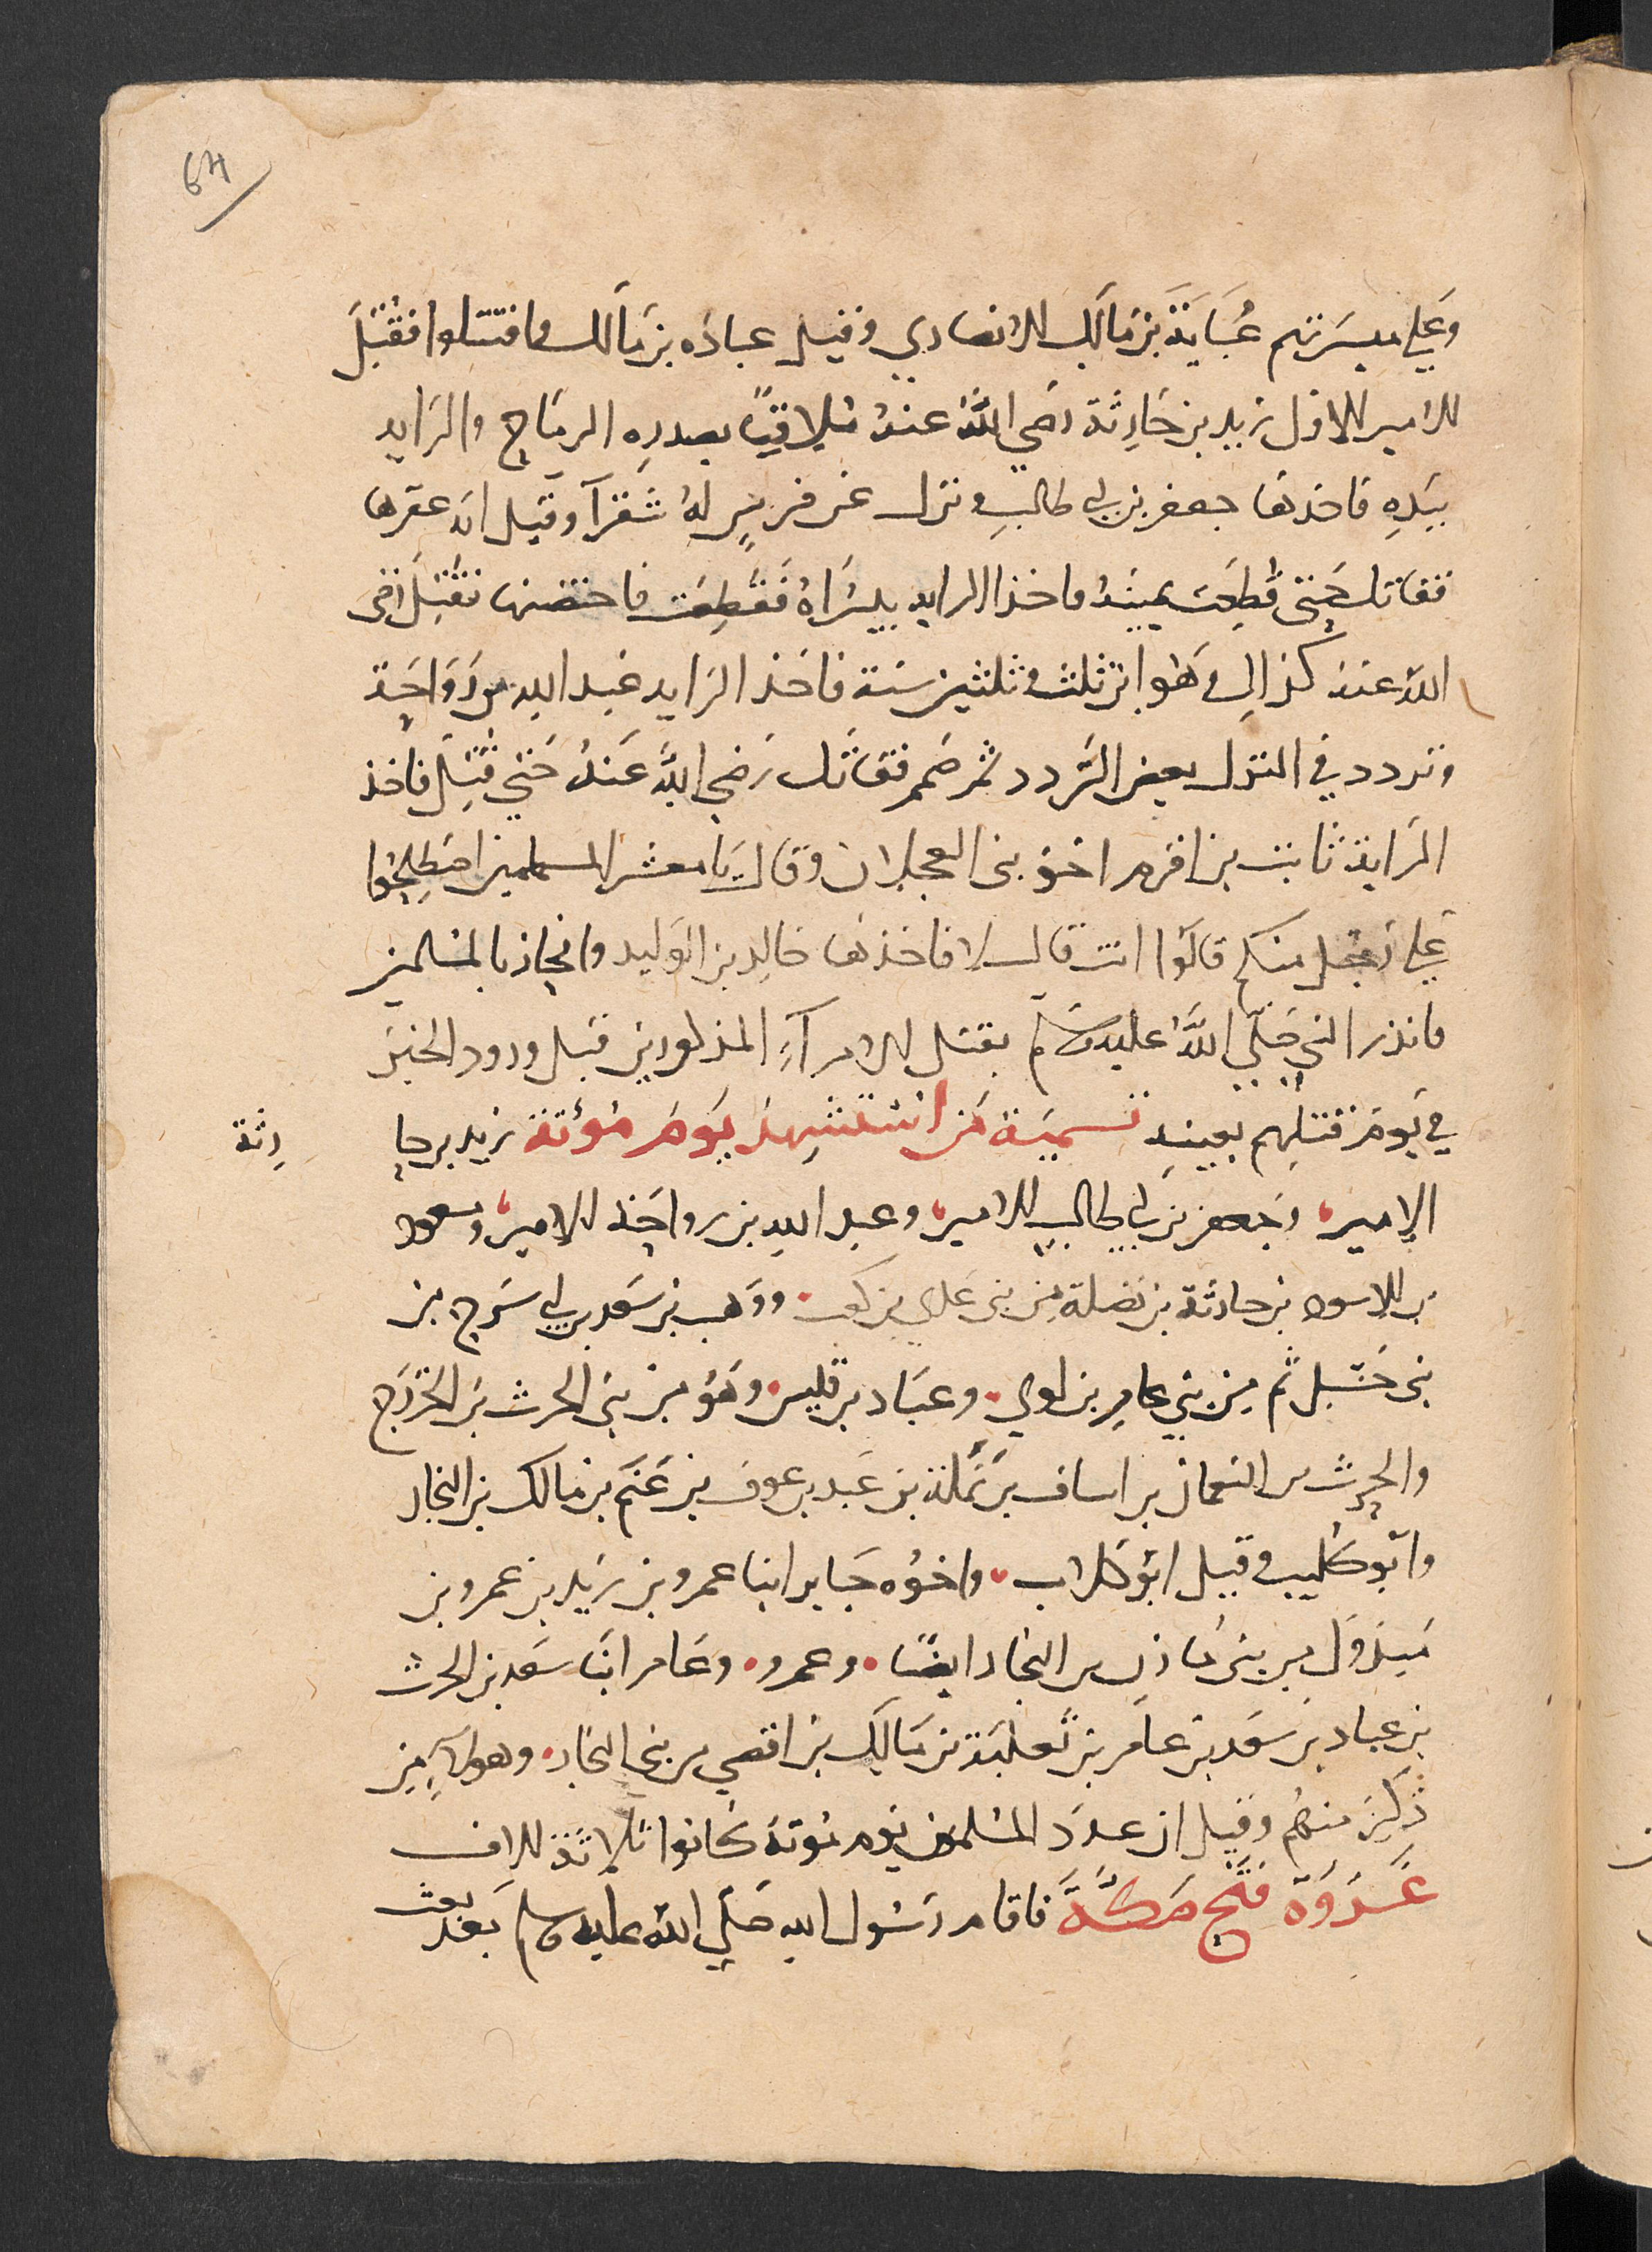 64
وعلى ميسرتهم عُبَايَةَ بن مَالك الانصاري وقيل عبادَه بن مَالك فاقتتلوا فقُتِلَ
الامير الاول زيد بن حَارِثة رضي اللهُ عنهُ مُلاقيًا بصدرِهِ الرمَاح والرَايه
بيَدِهِ فاخذها جعفر بن ابي طالب ونزل عن فرسٍ لهُ شقرآ وقيل انه عقرها
فقاتل حَتى قُطِعَت يمينهُ فاخذ الرايه بيسُرَاهُ فَقُطِعَت فاحتضنها فقُتِلَ رضى
اللهُ عنه كذلك وَهُو ابن ثلث وثلثين سَنة فاخذ الرَايه عَبد الله بن رَوَاحَة
وتردد في النزل بعض التَردد ثم صَمم فقاتَل رَضي اللهُ عَنهُ حَتي قُتِلَ فاخذ
الرَايةَ ثابت بن اقرم اخو بنى العجلان وقال يَا معشر المسلمين اصطلِحُوا
على رَجل منكم قالوُا انت قال لا فاخذها خالد بن الوَليد وانحاز بالمسلمين
فانذر النبي صَلي اللهُ عليه وسَلم بقتل الامرآءِ المذكورين قبل ورود الخبَر
في يَوم قتلِهم بعينِهِ تسميَة مَن استشهِدَ يَومَ مُؤتة زيد بن حا رِثة
الامير، وجَعفر بن ابي طالب الامير، وعبد الله بن رواحَة الامير، ومسعود
بن الاسود بن حارثة بن نَضلة مِن بنى عَدى بن كعب. ووَهب بن سَعد بن ابي سَرح من
بنى حَسْل ثم مِن بني عامِر بن لوي. وعبَاد بن قيس. وهَو من بَنى الحرث بن الخزرَج
والحرث بن النعمان بن اساف بن نَضلة بن عَبد بن عوف بن غنَم بن مالك بن النجار
وابَو كُليب وقيل ابوُ كلاب، واخوُه جَابر ابنا عمرو بن زيد بن عمرو بن
مَبذوَل من بنى مَازن بن النجار ايضًا. وعمرو. وعَامر ابنَا سَعد بن الحرث
بن عباد بن سَعد بن عامر بن ثعلبَة بن مَالِك بن افصى من بنى النجار. وهولآءِ مِن
ذُكِرَ منهُم وقيل ان عدَد المسُلمين يوم مُوتة كانوا ثلاثة الاف
غَزوَة فَتَح مَكَّةَ فاقام رَسُول الله صَلي اللهُ عليه وسَلم بَعد بعث